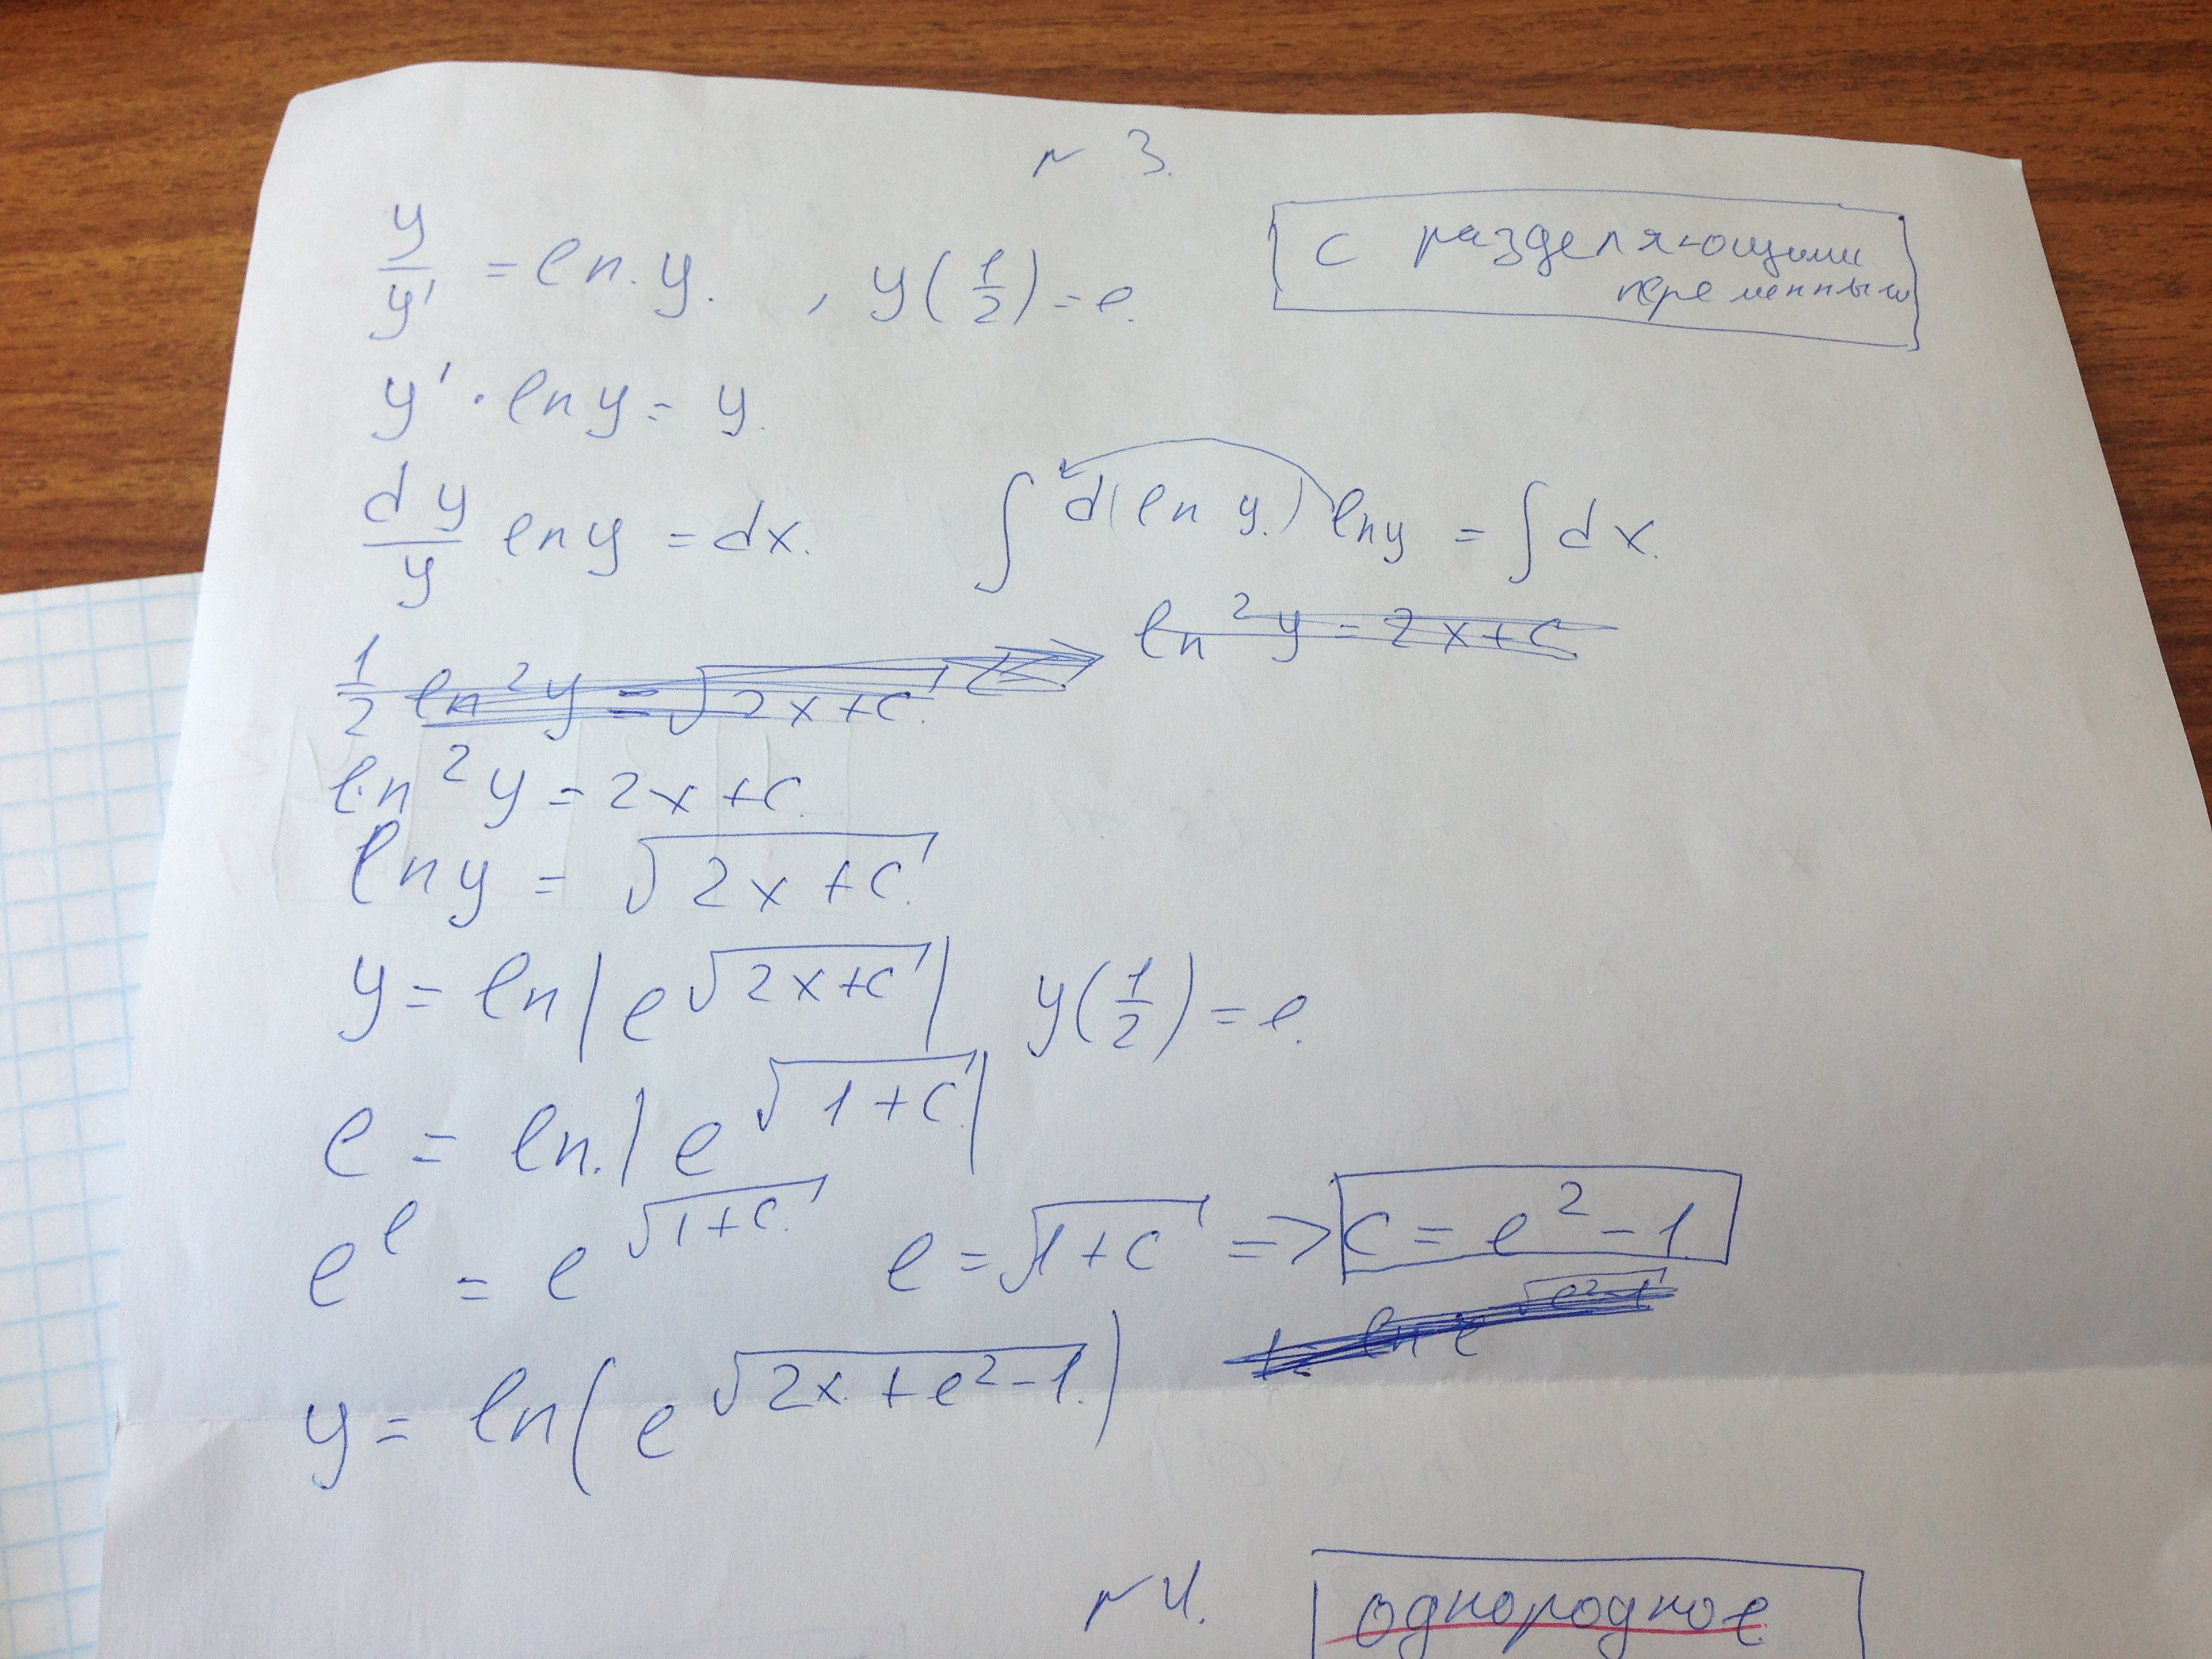 № 3.
y/y' = ln y. , y(1/2) = e.
с разделяющими
переменными
y' · ln y = y.
dy/y ln y = dx. ∫ d(ln y) ln y = ∫ dx.
ln²y = 2x + c
1/2 ln²y = √(2x + c)
ln²y = 2x + c.
ln y = √(2x + c)
y = ln|e^√(2x+c)| y(1/2) = e.
e = ln|e^√(1+c)|
e^e = e^√(1+c) e = √(1+c) => c = e² - 1
y = ln(e^√(2x + e² - 1))
№ 4.
однородное